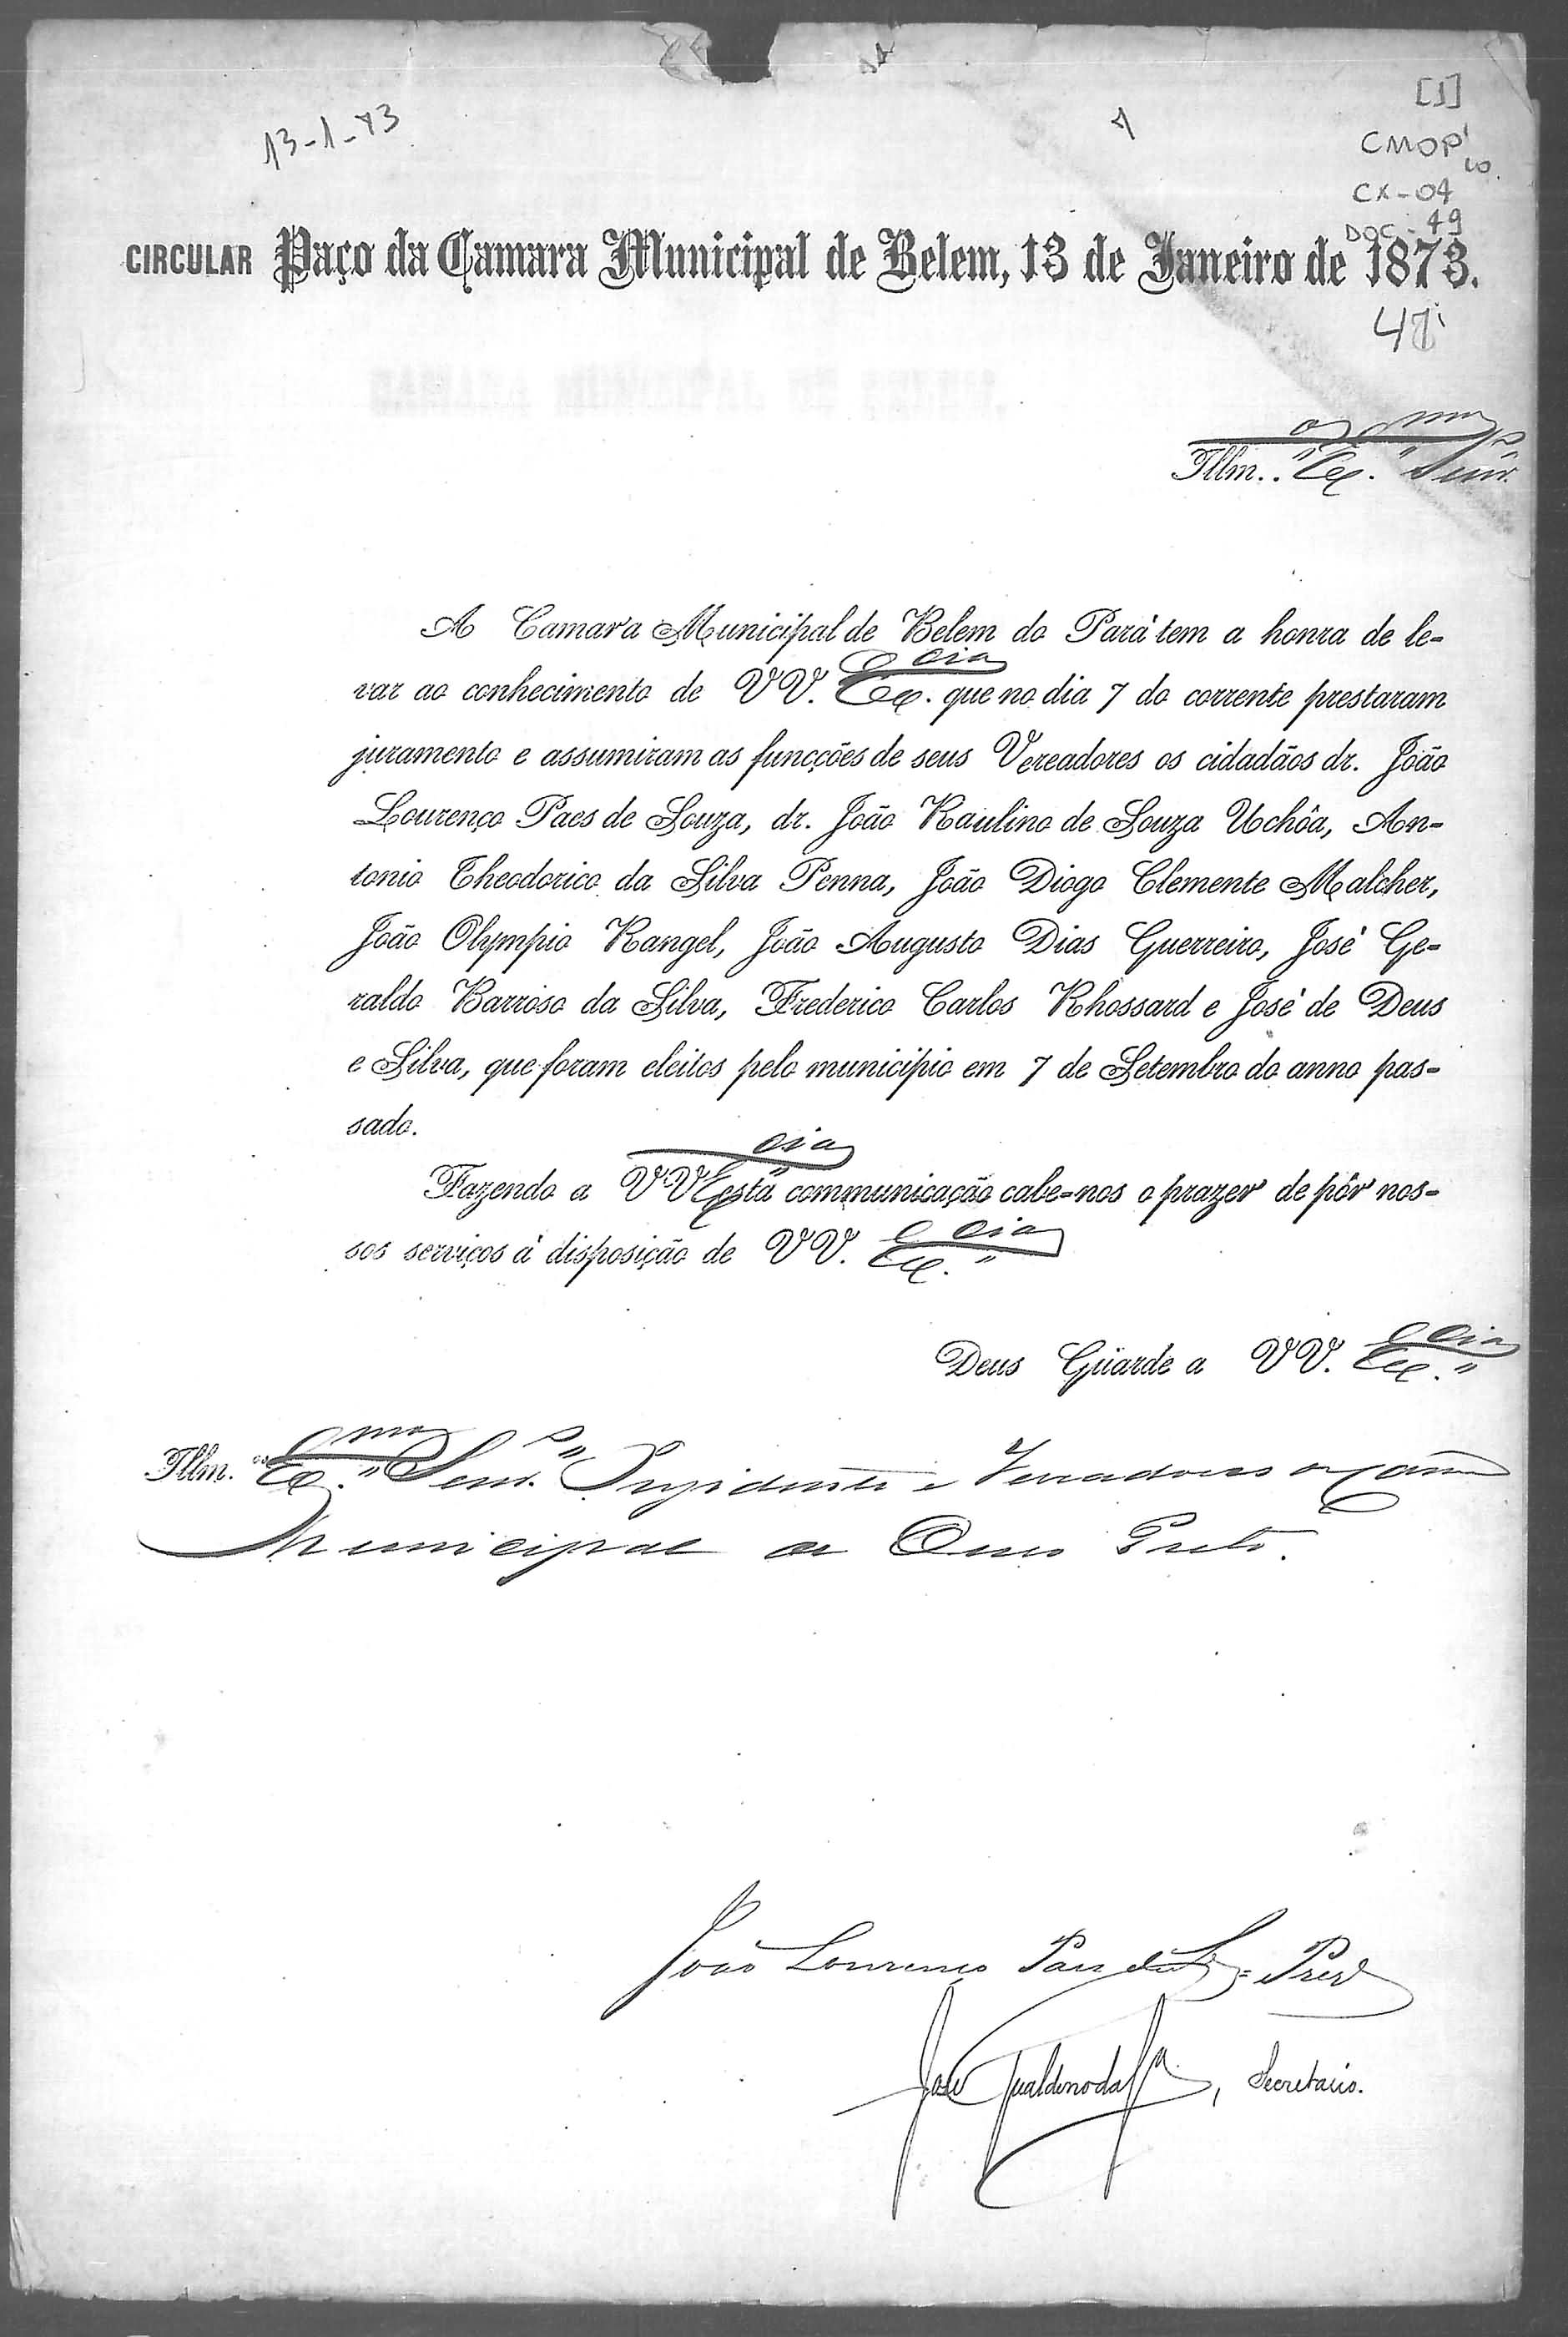 13-1-73
[1]
CMOP
CX-04
DOC-49
CIRCULAR Paço da Camara Municipal de Belem, 13 de Janeiro de 1873.
Illm.os Ex.mos Senr.s
A Camara Municipal de Belem do Pará tem a honra de le-
var ao conhecimento de VV. Ex.cias que no dia 7 do corrente prestaram
juramento e assumiram as funcções de seus Vereadores os cidadãos dr. João
Lourenço Paes de Souza, dr. João Raulino de Souza Uchôa, An-
tonio Theodorico da Silva Penna, João Diogo Clemente Malcher,
João Olympio Rangel, João Augusto Dias Guerreiro, José Ge-
raldo Barroso da Silva, Frederico Carlos Rhossard e José de Deus
e Silva, que foram eleitos pelo municipio em 7 de Setembro do anno pas-
sado.
Fazendo a VV Ex.cias esta communicação cabe-nos o prazer de pôr nos-
sos serviços á disposição de VV. Ex.cias
Deus Guarde a VV. Ex.cias
Illm.os Ex.mos Senr.s Presidente e Vereadores da Camara
Municipal de Ouro Preto.
João Lourenço Paes de Sz.a = Presd.e
José Gualdino da S.a, Secretario.